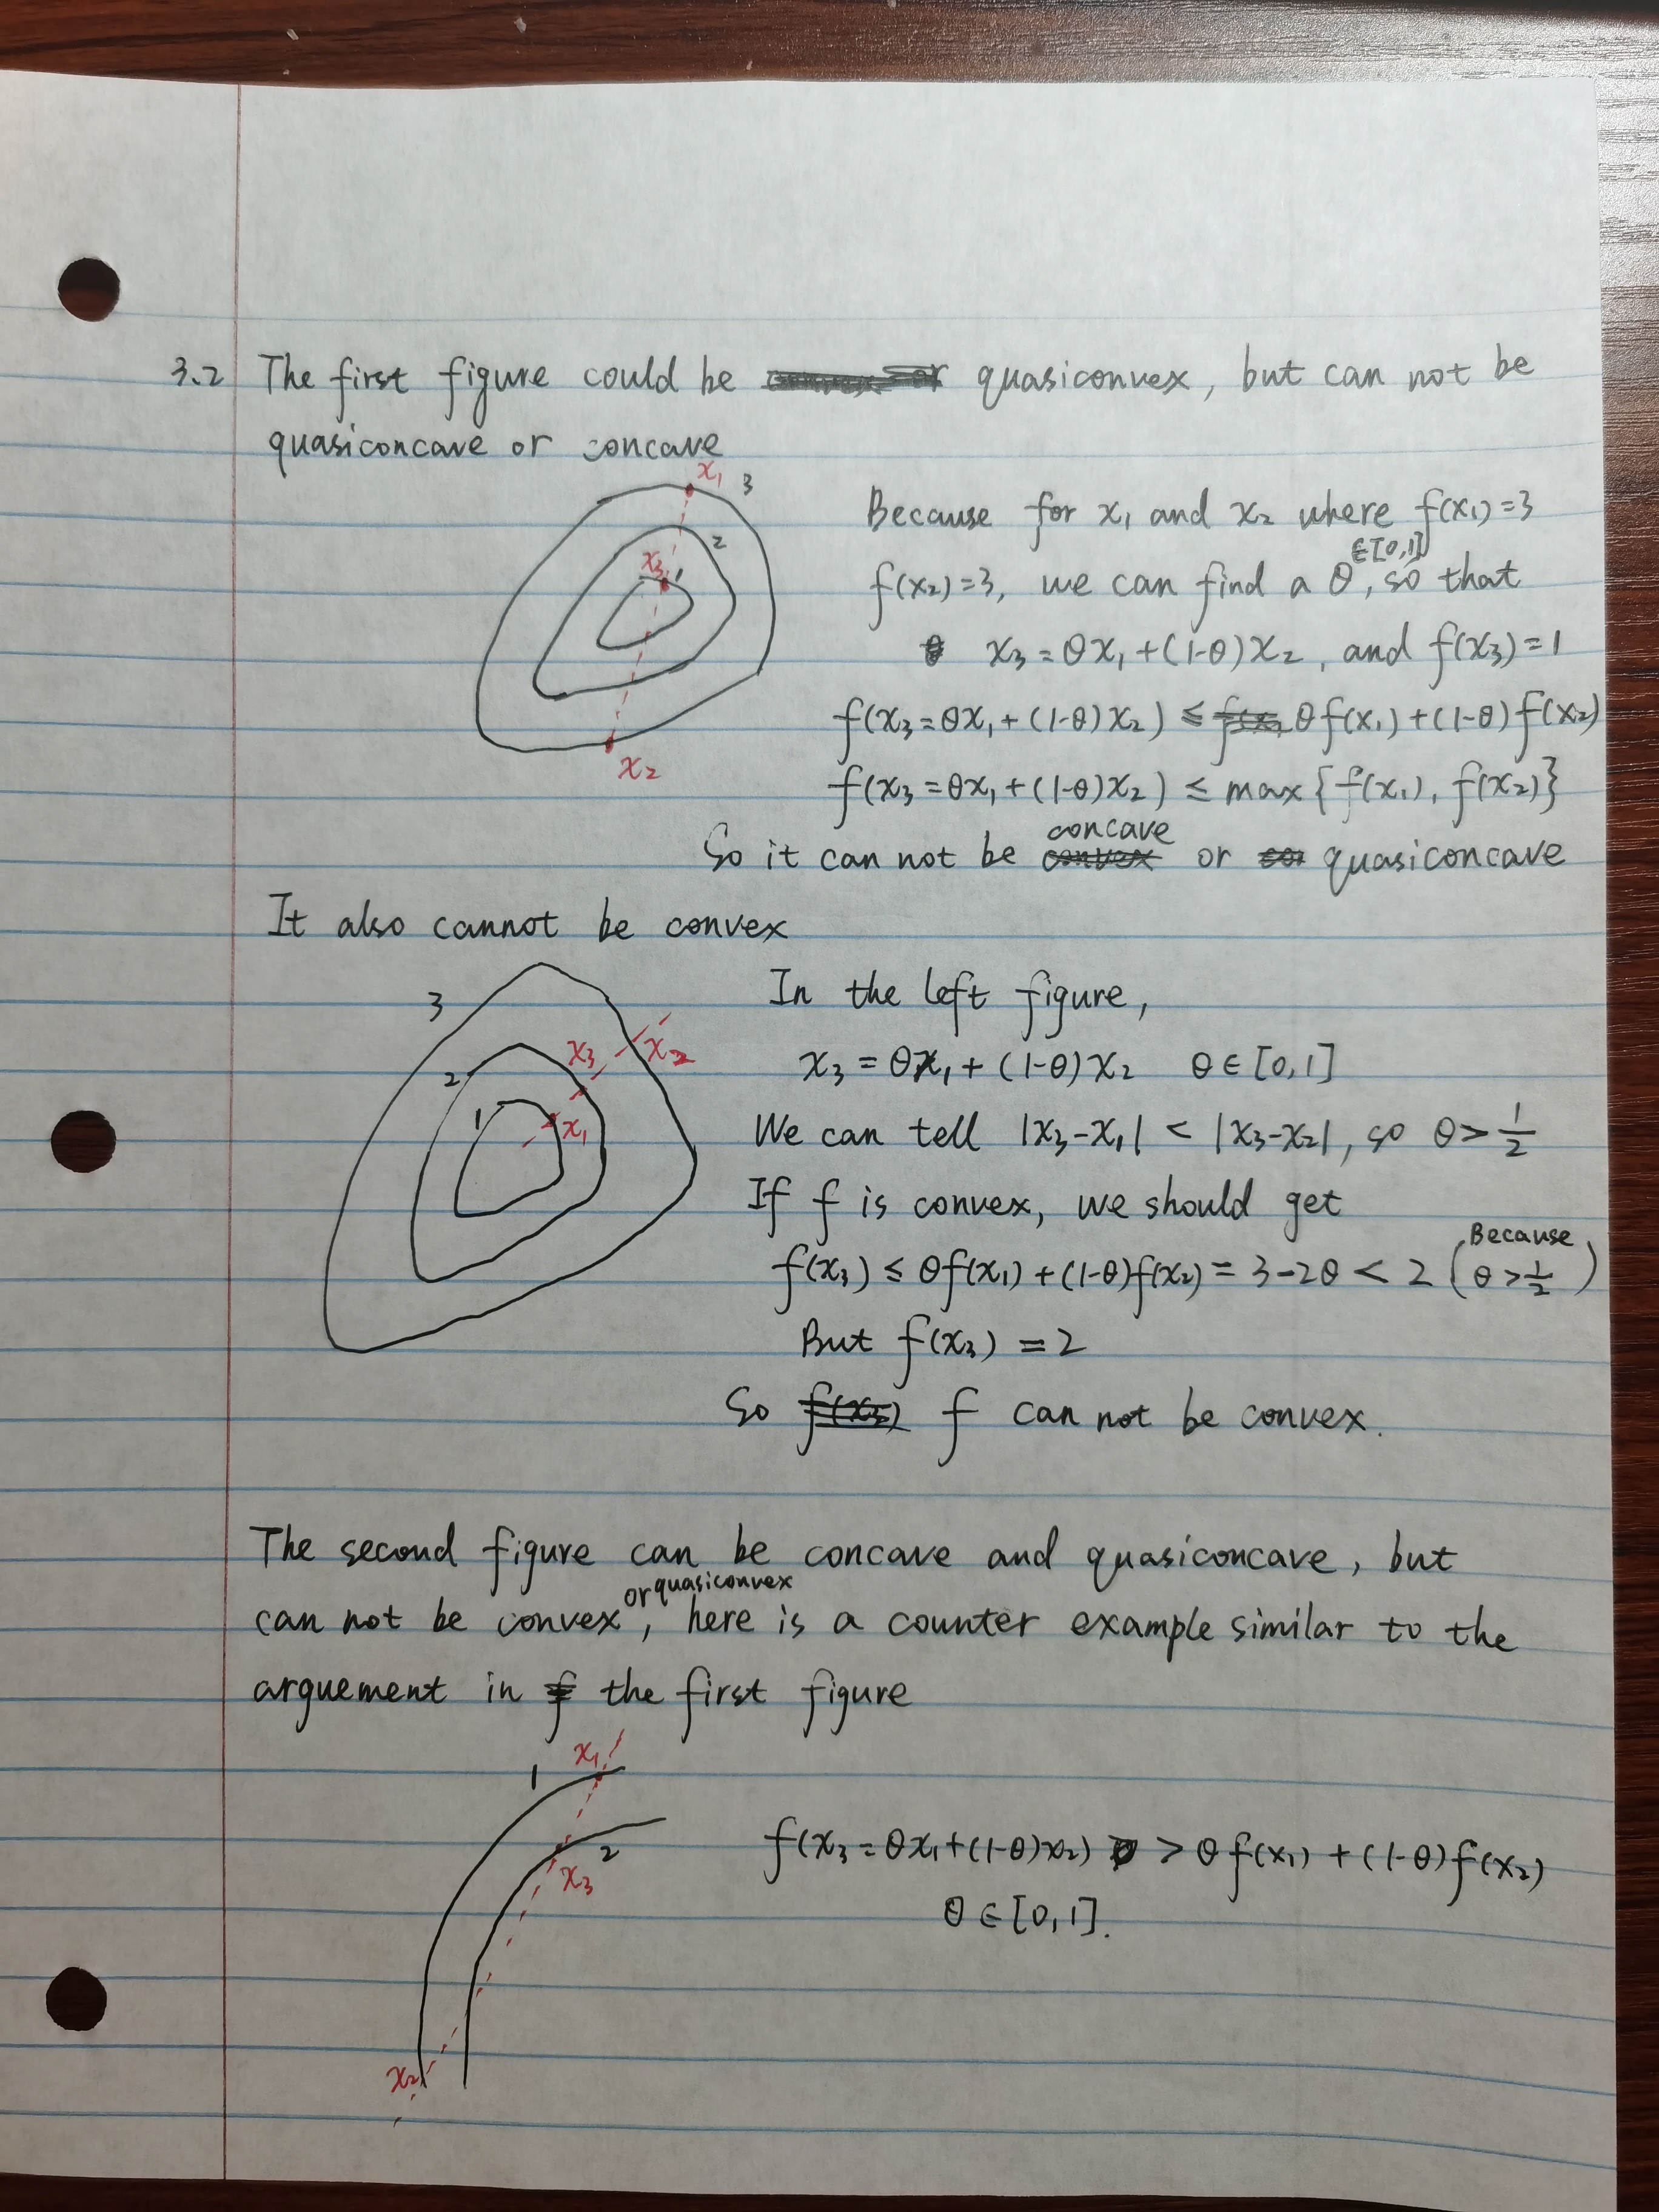 3.2 The first figure could be quasiconvex, but can not be
quasiconcave or concave
x₁ 3
2
x₃ 1
x₂
Because for x₁ and x₂ where f(x₁)=3
f(x₂)=3, we can find a θ ∈[0,1], so that
x₃ = θx₁ + (1-θ)x₂, and f(x₃)=1
f(x₃ = θx₁ + (1-θ)x₂) ≤ θf(x₁) + (1-θ)f(x₂)
f(x₃ = θx₁ + (1-θ)x₂) ≤ max{f(x₁), f(x₂)}
So it can not be concave or quasiconcave
It also cannot be convex
3
x₃ x₂
2
1 x₁
In the left figure,
x₃ = θx₁ + (1-θ)x₂ θ∈[0,1]
We can tell |x₃-x₁| < |x₃-x₂|, so θ > 1/2
If f is convex, we should get
f(x₃) ≤ θf(x₁) + (1-θ)f(x₂) = 3-2θ < 2 (Because θ > 1/2)
But f(x₃) = 2
So f can not be convex.
The second figure can be concave and quasiconcave, but
can not be convex or quasiconvex, here is a counter example similar to the
arguement in the first figure
x₁
1
2
x₃
x₂
f(x₃ = θx₁+(1-θ)x₂) > θf(x₁) + (1-θ)f(x₂)
θ∈[0,1].